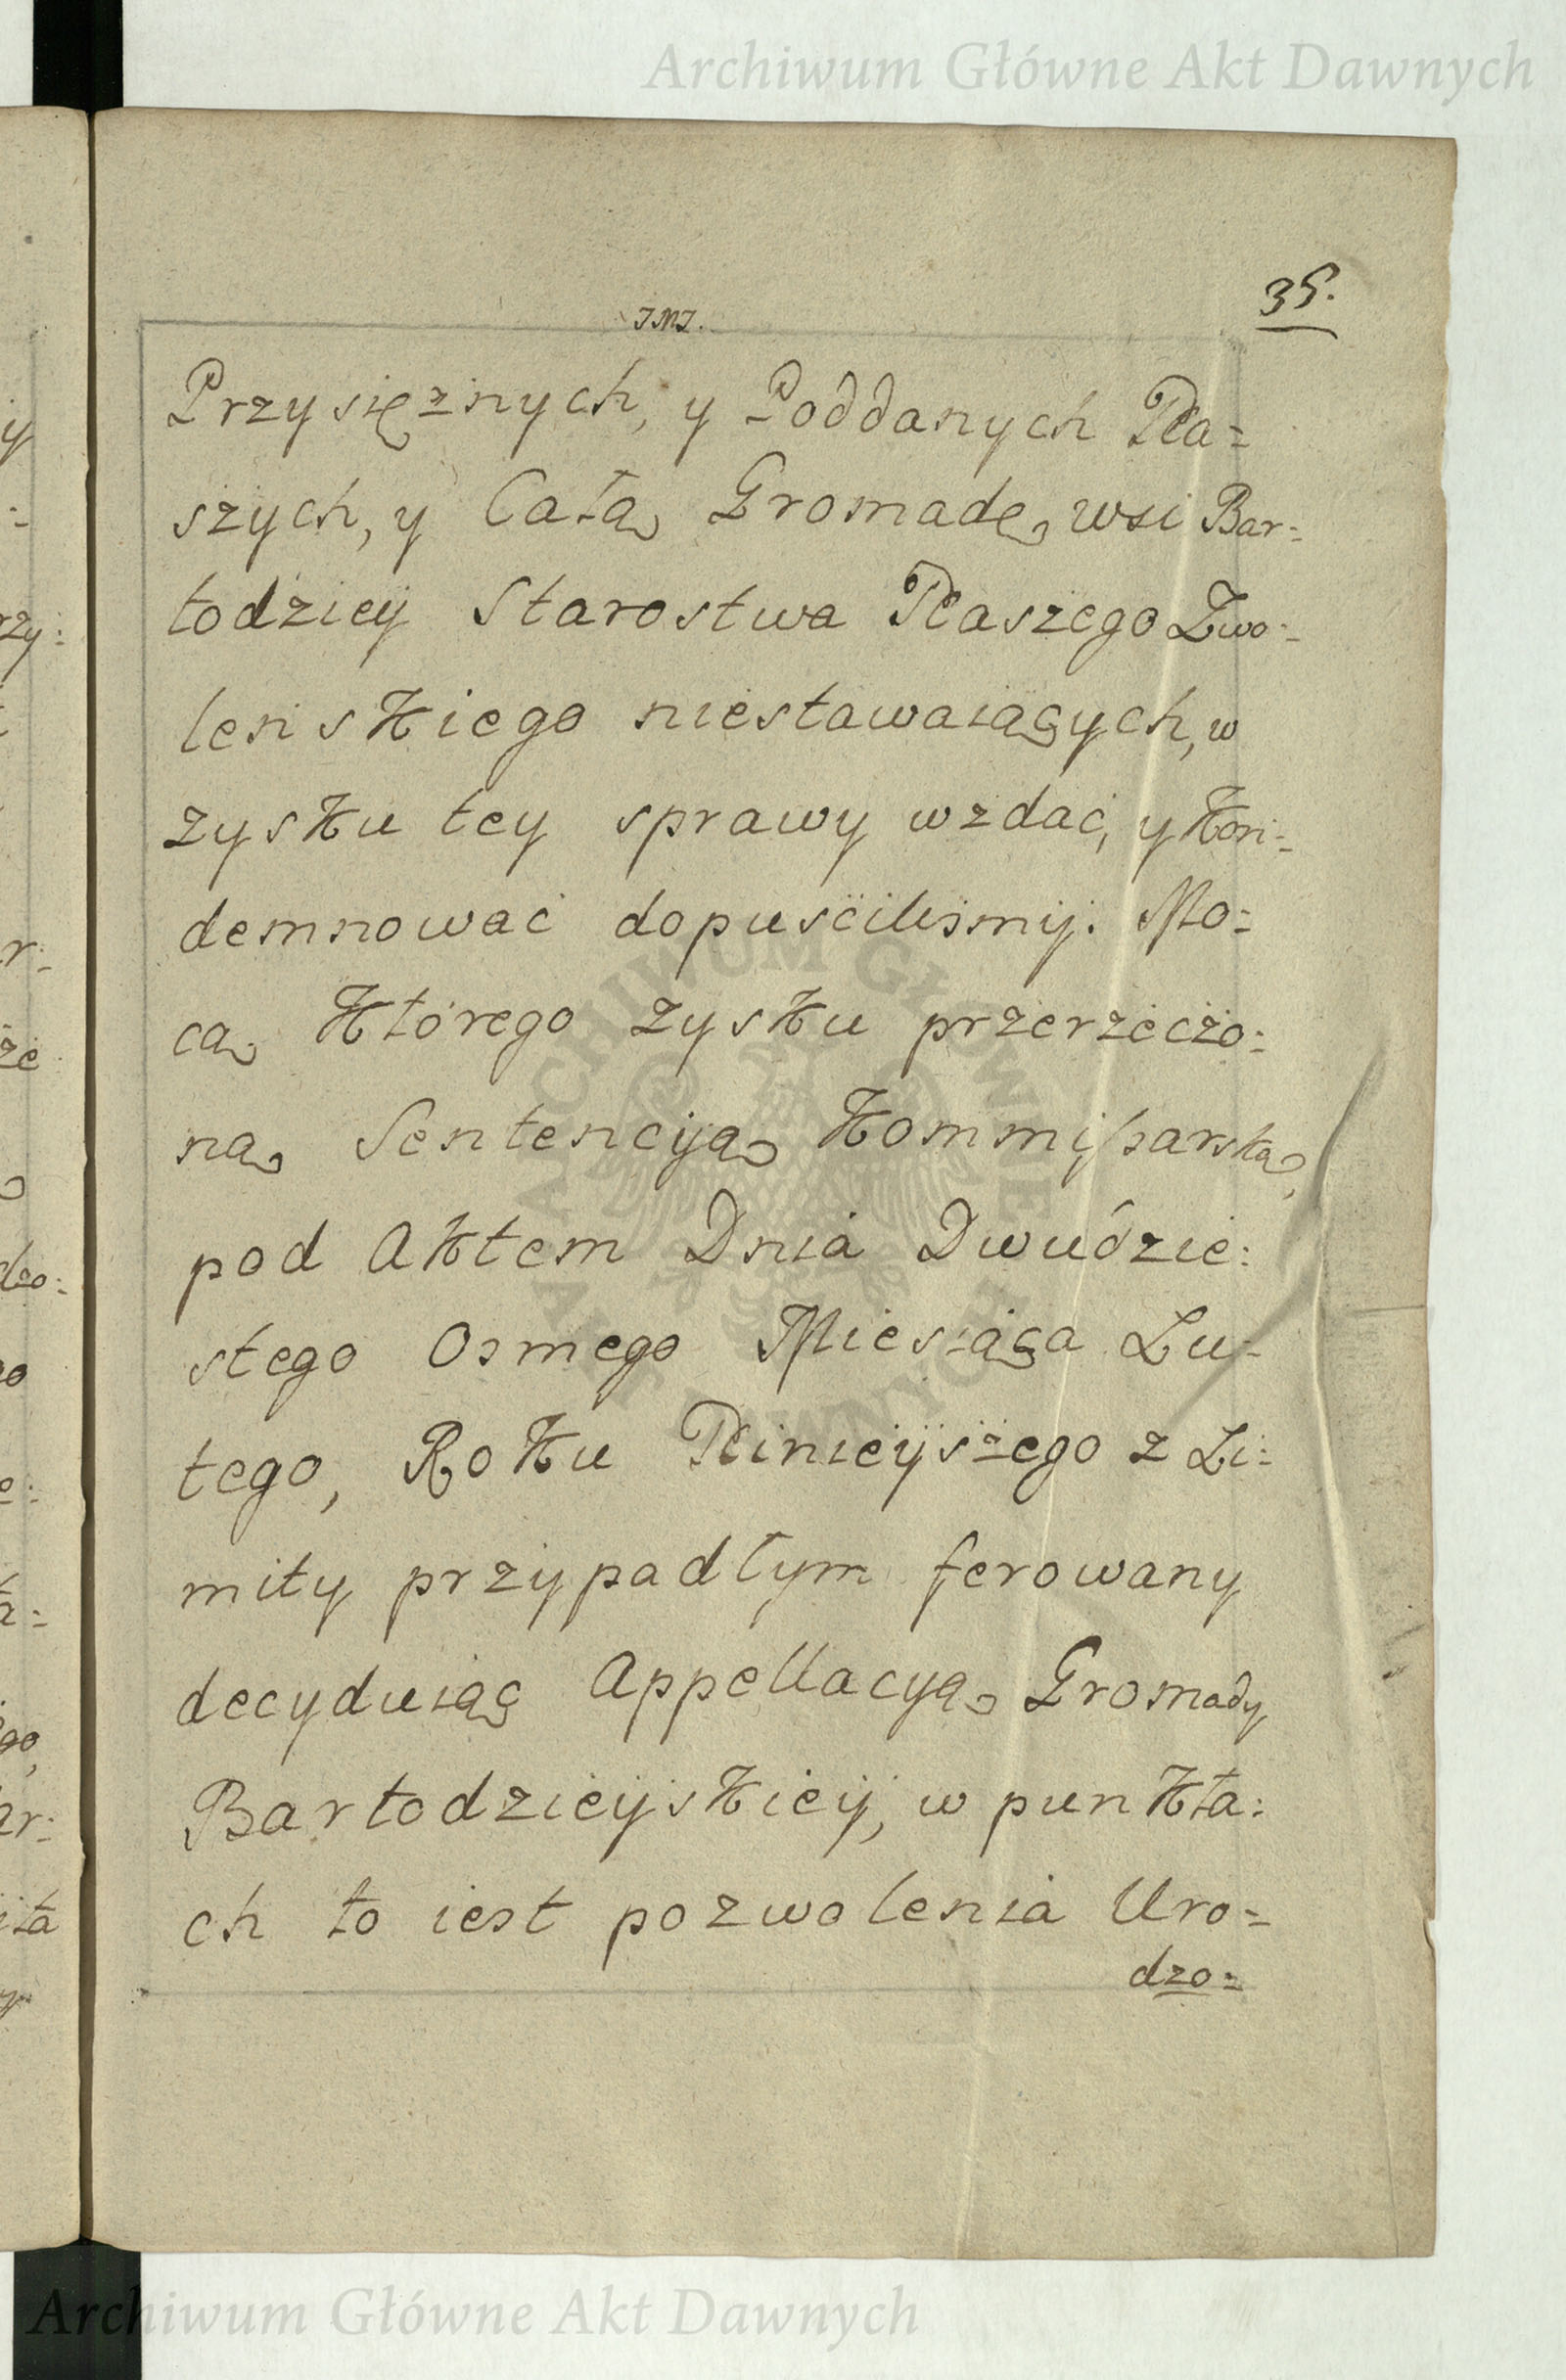 Archiwum Główne Akt Dawnych
35.
JMJ.
Przysięznych, y Poddanych Na-
szych, y Całą Gromadę wsi Bar-
todzieÿ Starostwa Naszego Zwo-
lenskiego niestawaiących, w
zysku tey sprawy wzdać, y Kon-
demnować dopuścilismÿ. Mo-
cą Którego zysku przerzeczo-
ną Sentencyią Kommissarską,
pod Aktem Dnia Dwudzie-
stego Osmego Miesiąca Lu-
tego, Roku Ninieÿszego z Li-
mity przypadłym ferowany
decyduiąc Appellacyą Gromady
Bartodzieÿskieÿ, w punkta-
ch to iest pozwolenia Uro-
dzo-
ARCHIWUM GŁÓWNE AKT DAWNYCH
Archiwum Główne Akt Dawnych